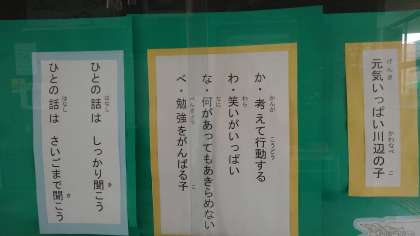 元気いっぱい川辺の子
か・考えて行動する
わ・笑いがいっぱい
な・何があってもあきらめない
べ・勉強をがんばる子
ひとの話は しっかり聞こう
ひとの話は さいごまで聞こう